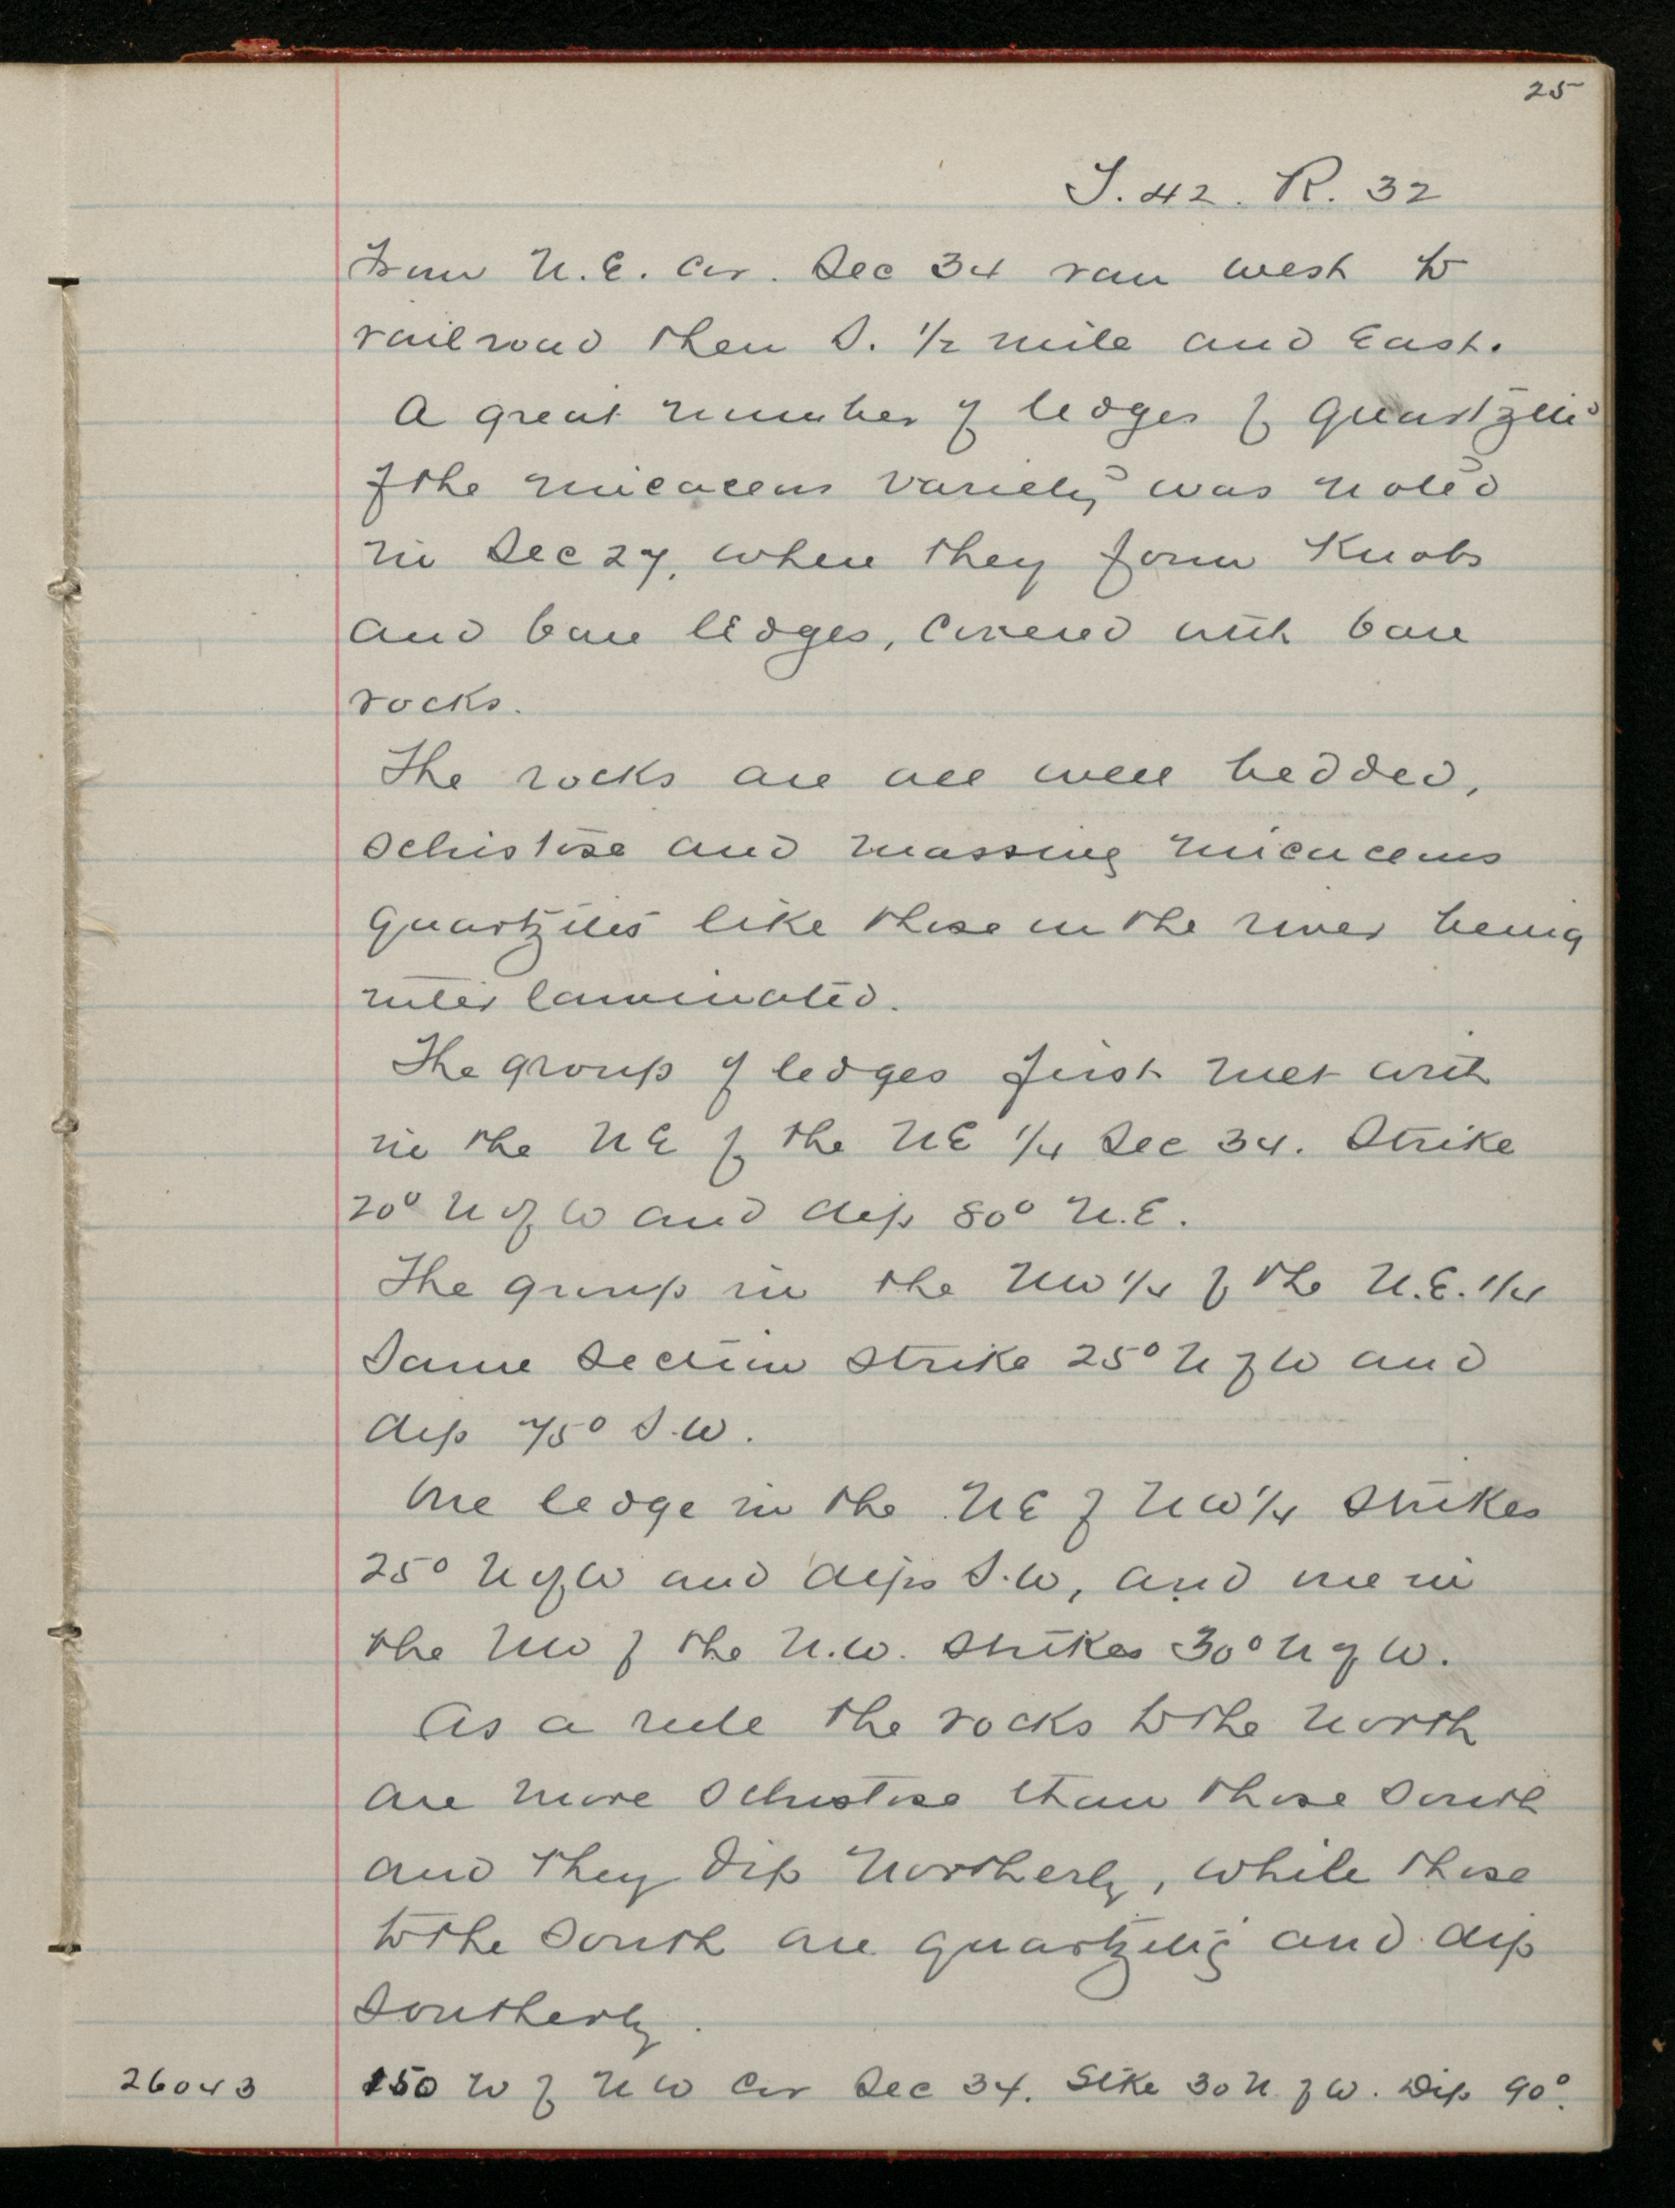 25
T. 42. R. 32
From N.E. Cor. Sec 34 ran west to
railroad then S. 1/2 mile and East.
A great number of ledges of quartzite
of the micaceous variety was noted
in Sec 27, where they form Knobs
and bare ledges, covered with bare
rocks.
The rocks are all well bedded,
schistose and massive micaceous
quartzites like those in the river being
inter laminated.
The group of ledges first met with
in the NE of the NE 1/4 Sec 34. Strike
20° N of W and dip 80° N.E.
The group in the NW 1/4 of the N.E. 1/4
Same Section strike 25° N of W and
dip 75° S.W.
One ledge in the NE of NW 1/4 strikes
25° N of W and dips S.W, and one in
the NW of the N.W. strikes 30° N of W.
As a rule the rocks to the north
are more schistose than those South
and they dip Northerly, while those
to the South are quartzitic and dip
Southerly.
26043 150 W of NW Cor Sec 34. Stke 30 N of W. Dip 90°.